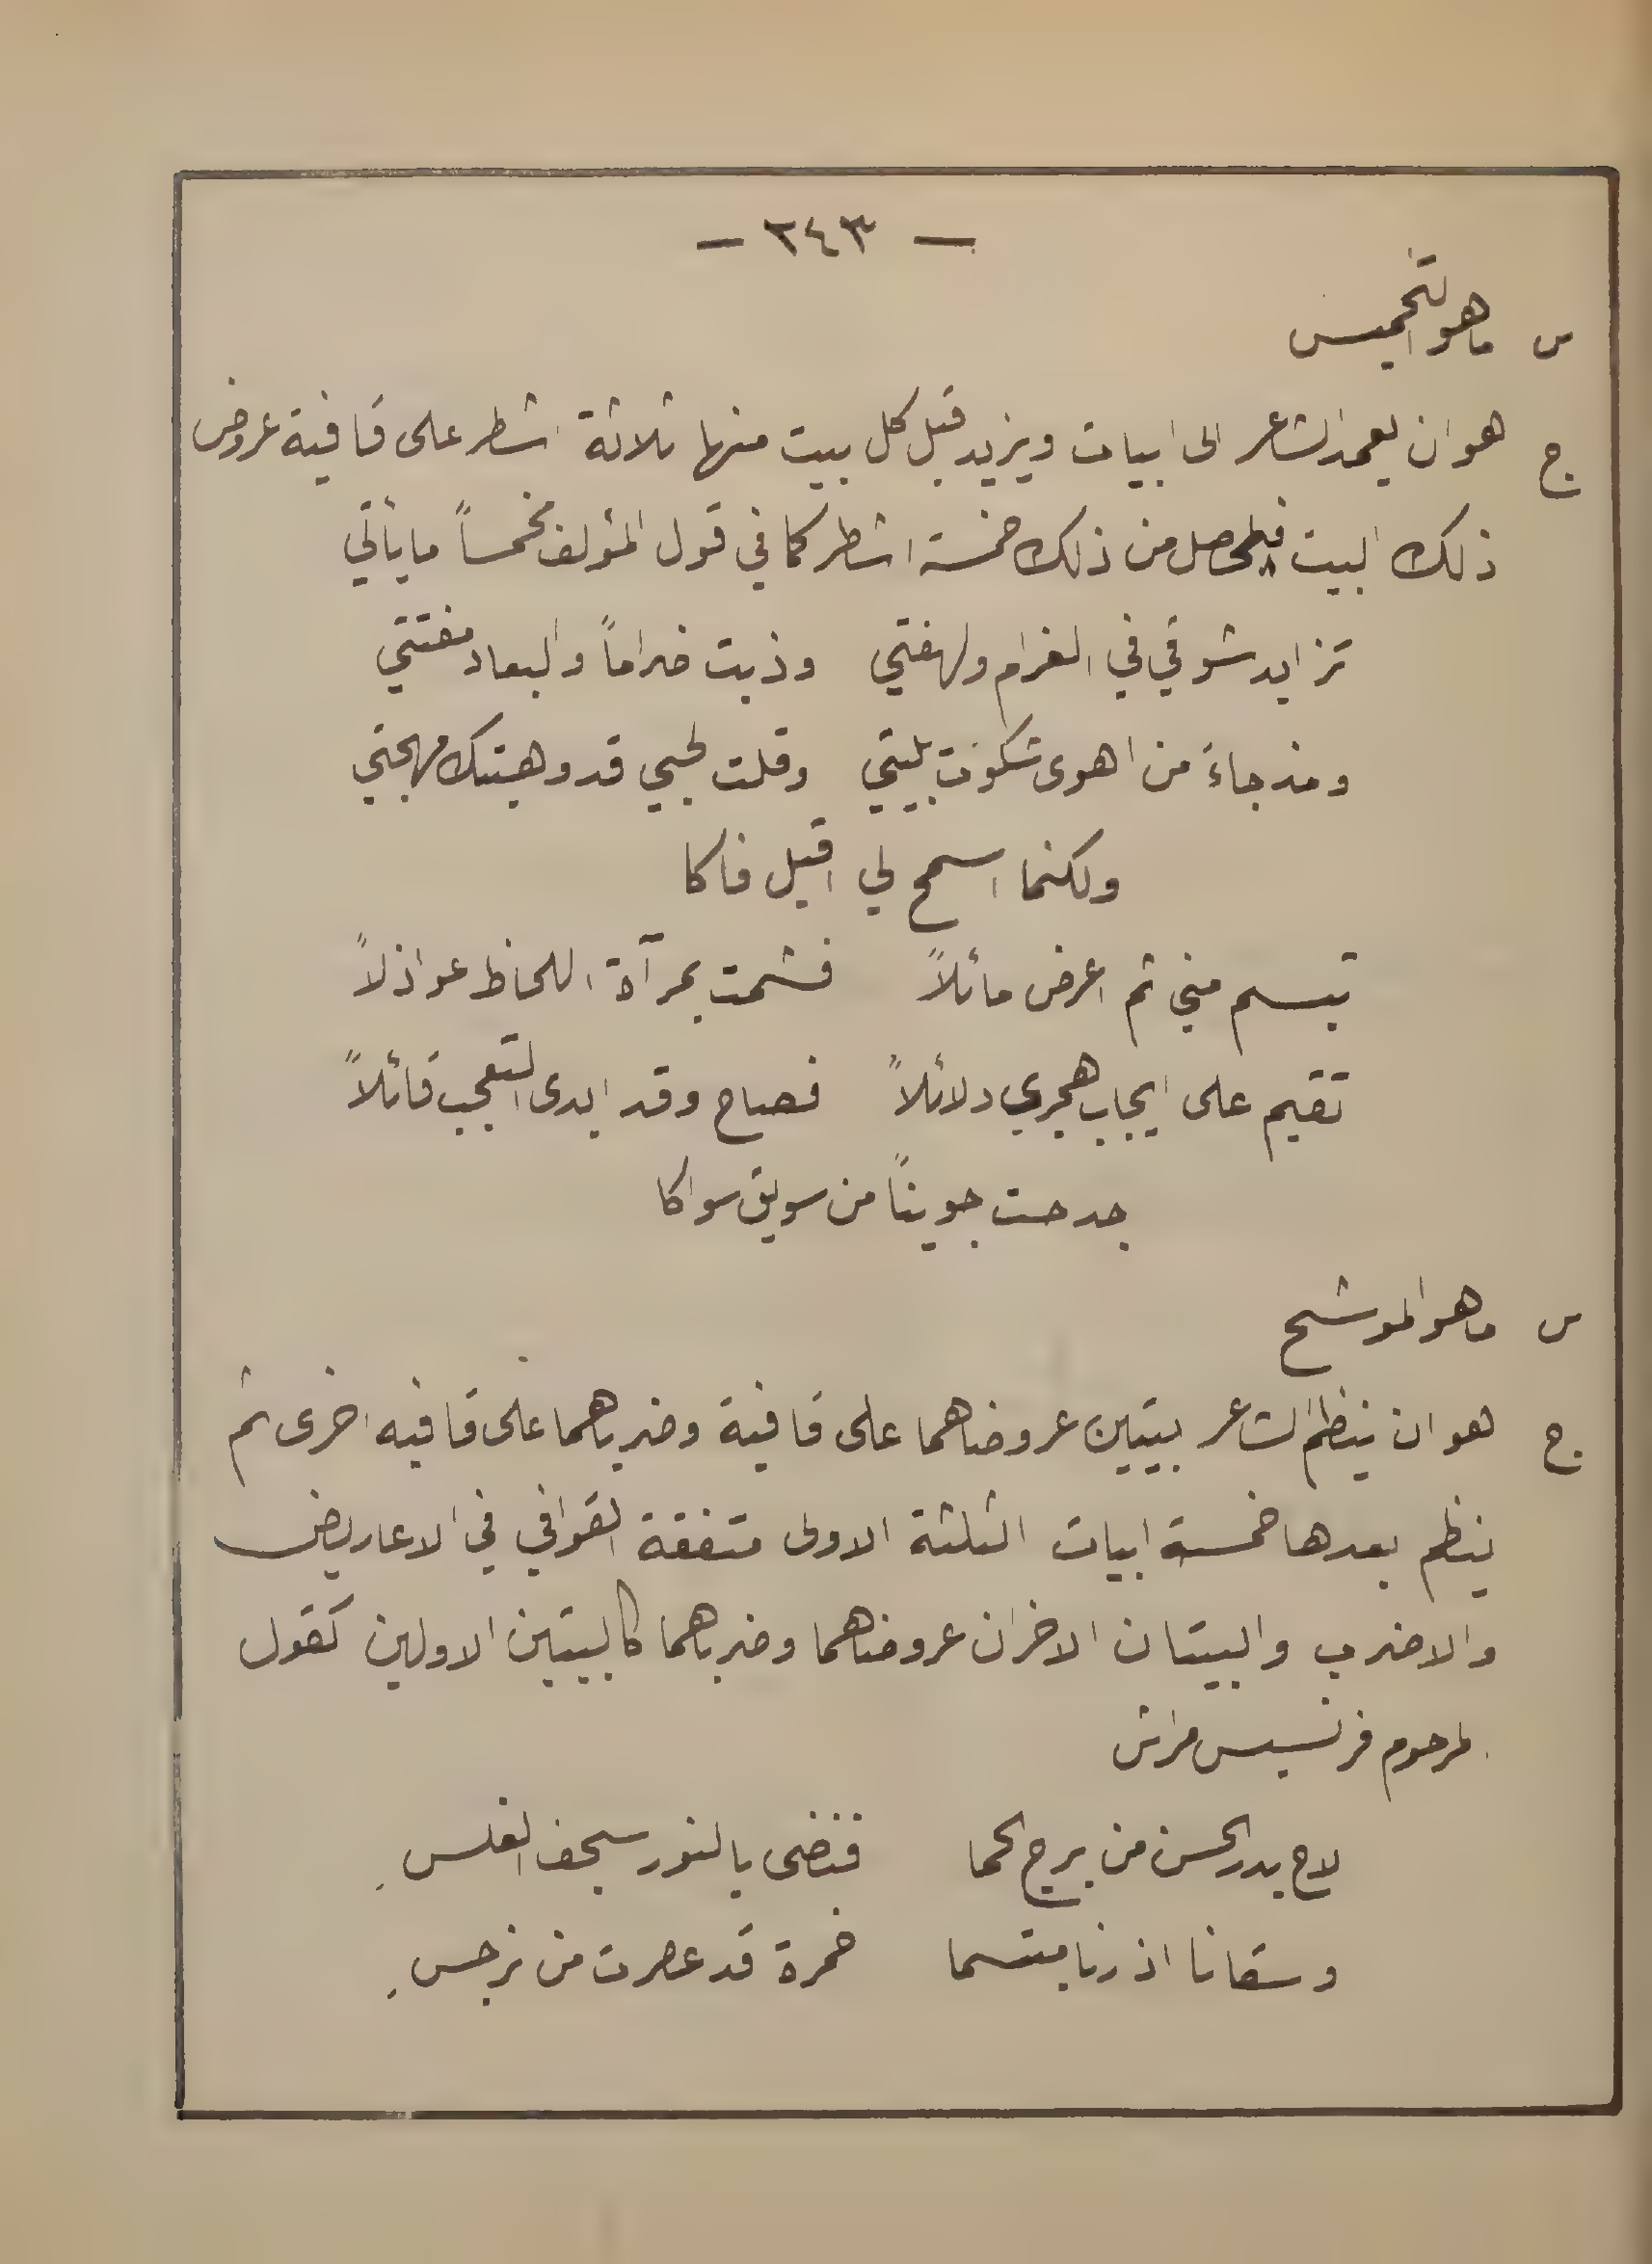 — ٢٤٣ —
س ما هو التخميس
ج هو ان يعمد الشاعر الى ابيات ويزيد قبل كل بيت منها ثلاثة اشطر على قافية عروض
ذلك البيت فيحصل من ذلك خمسة اشطر كما في قول المؤلف مخمساً ما يأتي
تزايد شوقي في الغرام ولهفتي وذبت ضراماً والبعاد مفتتي
ومذ جاءَ من اهوى شكوت بليتي وقلت لحبي قد وهبتك مهجتي
ولكنما اسمح لي اقبل فاكا
تبسم مني ثم اعرض مائلاً فشمت بمرآة اللحاظ عواذلاً
تقيم على ايجاب هجري دلائلاً فصاح وقد ابدى التعجب قائلاً
جدحت جويناً من سويق سواكا
س ما هو الموشح
ج هو ان ينظم الشاعر بيتين عروضاهما على قافية وضرباهما على قافيه اخرى ثم
ينظم بعدها خمسة ابيات الثلثة الاولى متفقة القوافي في الاعاريض
والاضرب والبيتان الاخران عروضاهما وضرباهما كالبيتين الاولين كقول
المرحوم فرنسيس مراش
لاح بدر الحسن من برج الحما فنضى بالنور سجف الغلسِ
وسقانا اذ رنا مبتسما خمرة قد عصرت من نرجسِ